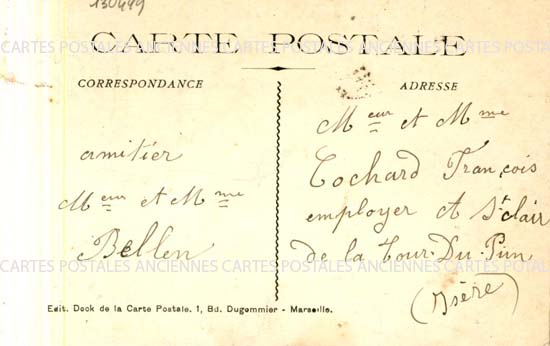 130449
CARTE POSTALE
CORRESPONDANCE
amitier
Meur et Mme
Bellen
ADRESSE
Meur et Mme
Cochard François
employer A St clair
de la tour Du Pin
(Isère)
Edit. Dock de la Carte Postale. 1, Bd. Dugommier - Marseille.
CARTES POSTALES ANCIENNES CARTES POSTALES ANCIENNES CARTES POSTALES
CARTES POSTALES ANCIENNES CARTES POSTALES ANCIENNES CARTES POSTALES